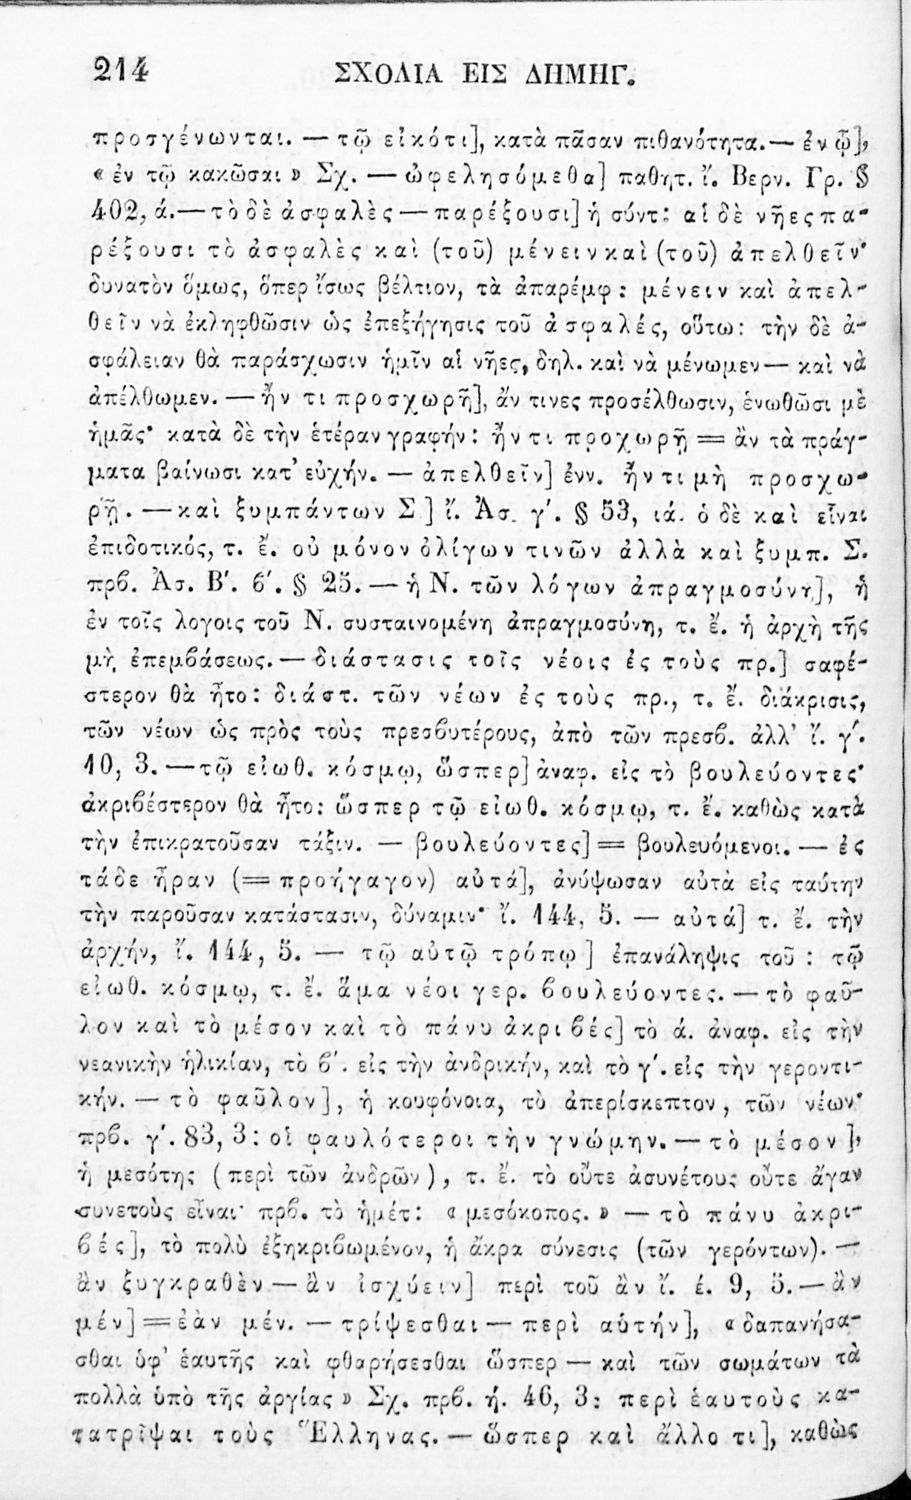 214 ΣΧΟΛΙΑ ΕΙΣ ΔΗΜΗΓ.
προσγένωνται. — τῷ εἰκότι], κατὰ πᾶσαν πιθανότητα. — ἐν ᾧ],
« ἐν τῷ κακῶσαι » Σχ. — ὠφελησόμεθα] παθητ. ἴ. Βερν. Γρ. §
402, ά.— τὸ δὲ ἀσφαλὲς — παρέξουσι] ἡ σύντ: αἱ δὲ νῆες πα-
ρέξουσι τὸ ἀσφαλὲς καὶ (τοῦ) μένειν καὶ (τοῦ) ἀπελθεῖν·
δυνατὸν ὅμως, ὅπερ ἴσως βέλτιον, τὰ ἀπαρέμφ: μένειν καὶ ἀπελ-
θεῖν νὰ ἐκληφθῶσιν ὡς ἐπεξήγησις τοῦ ἀσφαλές, οὕτω: τὴν δὲ ἀ-
σφάλειαν θὰ παράσχωσιν ἡμῖν αἱ νῆες, δηλ. καὶ νὰ μένωμεν — καὶ νὰ
ἀπέλθωμεν. — ἤν τι προσχωρῇ], ἄν τινες προσέλθωσιν, ἑνωθῶσι μὲ
ἡμᾶς· κατὰ δὲ τὴν ἑτέραν γραφήν: ἤν τι προχωρῇ = ἂν τὰ πράγ-
ματα βαίνωσι κατ' εὐχήν. — ἀπελθεῖν] ἐνν. ἤν τι μὴ προσχω-
ρῇ. — καὶ ξυμπάντων Σ] ἴ. Ἀσ. γ'. § 53, ιά. ὁ δὲ καὶ εἶναι
ἐπιδοτικός, τ. ἔ. οὐ μόνον ὀλίγων τινῶν ἀλλὰ καὶ ξυμπ. Σ.
πρβ. Ἀσ. Β'. ϐ'. § 25. — ἡ Ν. τῶν λόγων ἀπραγμοσύνη], ἡ
ἐν τοῖς λογοις τοῦ Ν. συσταινομένη ἀπραγμοσύνη, τ. ἔ. ἡ ἀρχὴ τῆς
μὴ ἐπεμβάσεως. — διάστασις τοῖς νέοις ἐς τοὺς πρ.] σαφέ-
στερον θὰ ἦτο: διάστ. τῶν νέων ἐς τοὺς πρ., τ. ἔ. διάκρισις,
τῶν νέων ὡς πρὸς τοὺς πρεσβυτέρους, ἀπὸ τῶν πρεσβ. ἀλλ' ἴ. γ'.
10, 3. — τῷ εἰωθ. κόσμῳ, ὥσπερ] ἀναφ. εἰς τὸ βουλεύοντες·
ἀκριβέστερον θὰ ἦτο: ὥσπερ τῷ εἰωθ. κόσμῳ, τ. ἔ. καθὼς κατὰ
τὴν ἐπικρατοῦσαν τάξιν. — βουλεύοντες] = βουλευόμενοι. — ἐς
τάδε ἦραν (= προήγαγον) αὐτά], ἀνύψωσαν αὐτὰ εἰς ταύτην
τὴν παροῦσαν κατάστασιν, δύναμιν· ἴ. 144, 5. — αὐτά] τ. ἔ. τὴν
ἀρχήν, ἴ. 144, 5. — τῷ αὐτῷ τρόπῳ] ἐπανάληψις τοῦ: τῷ
εἰωθ. κόσμῳ, τ. ἔ. ἅμα νέοι γερ. βουλεύοντες. — τὸ φαῦ-
λον καὶ τὸ μέσον καὶ τὸ πάνυ ἀκριβές] τὸ ά. ἀναφ. εἰς τὴν
νεανικὴν ἡλικίαν, τὸ ϐ'. εἰς τὴν ἀνδρικήν, καὶ τὸ γ'. εἰς τὴν γεροντι-
κήν. — τὸ φαῦλον], ἡ κουφόνοια, τὸ ἀπερίσκεπτον, τῶν νέων·
πρβ. γ'. 83, 3: οἱ φαυλότεροι τὴν γνώμην. — τὸ μέσον],
ἡ μεσότης (περὶ τῶν ἀνδρῶν), τ. ἔ. τὸ οὔτε ἀσυνέτους οὔτε ἄγαν
συνετοὺς εἶναι· πρβ. τὸ ἡμέτ: « μεσόκοπος. » — τὸ πάνυ ἀκρι-
βές], τὸ πολὺ ἐξηκριβωμένον, ἡ ἄκρα σύνεσις (τῶν γερόντων). —
ἂν ξυγκραθὲν — ἂν ἰσχύειν] περὶ τοῦ ἂν ἴ. έ. 9, 5. — ἂν
μέν] = ἐὰν μέν. — τρίψεσθαι — περὶ αὑτήν], « δαπανήσα-
σθαι ὑφ' ἑαυτῆς καὶ φθαρήσεσθαι ὥσπερ — καὶ τῶν σωμάτων τὰ
πολλὰ ὑπὸ τῆς ἀργίας » Σχ. πρβ. ή. 46, 3: περὶ ἑαυτοὺς κα-
τατρῖψαι τοὺς Ἕλληνας. — ὥσπερ καὶ ἄλλο τι], καθὼς